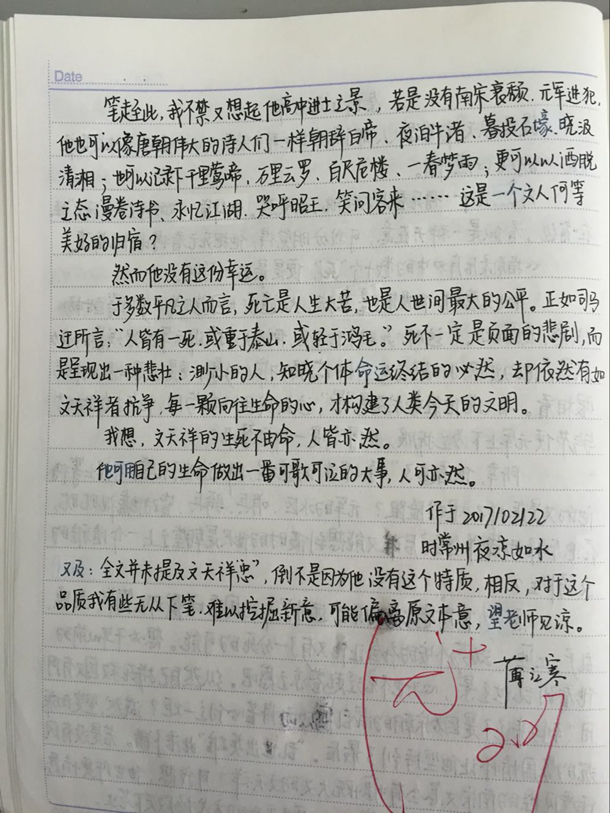 Date
笔走至此,我不禁又想起他高中进士之景,若是没有南宋衰颓、元军进犯,
他也可以像唐朝伟大的诗人们一样朝辞白帝、夜泊牛渚、暮投石壕、晓汲
清湘;也可以记录下千里莺啼,万里云罗、百尺危楼、一春梦雨;更可以以洒脱
之态漫卷诗书、永忆江湖、哭呼昭王、笑问客来……这是一个文人何等
美好的归宿?
然而他没有这份幸运。
于多数平凡之人而言,死亡是人生大苦,也是人世间最大的公平。正如司马
迁所言:"人皆有一死,或重于泰山,或轻于鸿毛。"死不一定是负面的悲剧,而
是呈现出一种悲壮:渺小的人,知晓个体命运终结的必然,却依然有如
文天祥者抗争,每一颗向往生命的心,才构建了人类今天的文明。
我想,文天祥的生死不由命,人皆亦然。
他可用自己的生命做出一番可歌可泣的大事,人可亦然。
作于2017/02/22
时常州夜凉如水
又及:全文并未提及文天祥"忠",倒不是因为他没有这个特质,相反,对于这个
品质我有些无从下笔,难以挖掘新意,可能偏离原文本意,望老师见凉。
蒋之寒